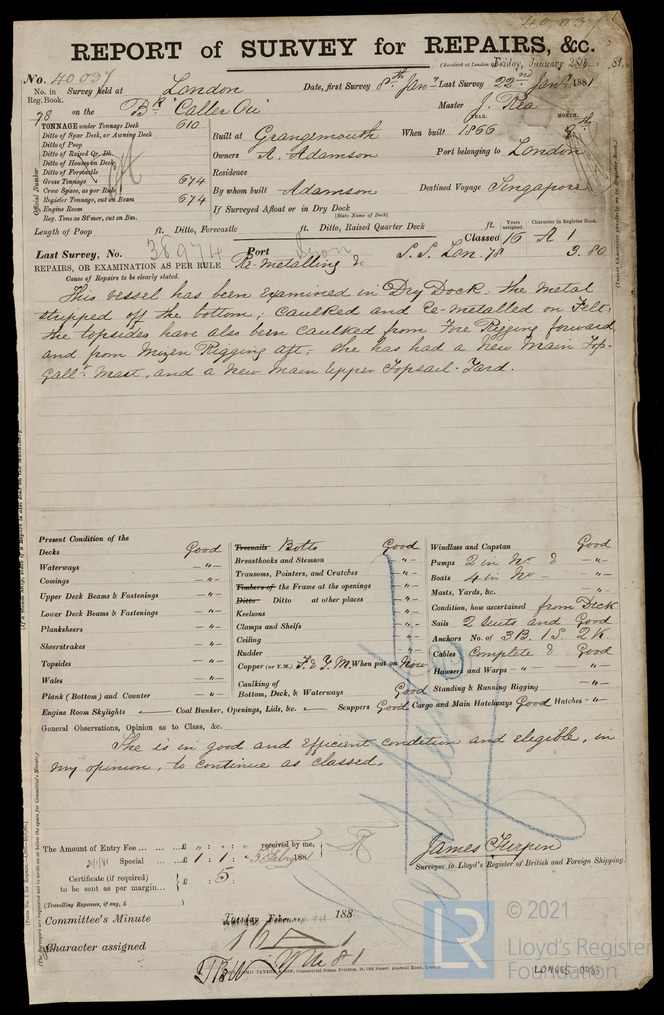 40037
REPORT of SURVEY for REPAIRS, &c.
No. 40037 (Received at London Friday, January 28th 81.
No. in Survey held at London Date, first Survey 8th Jany Last Survey 22nd Jany 1881
Reg. Book.
78 on the Bk "Caller Ou" Master J. Rea
TONNAGE under Tonnage Deck 610
Ditto of Spar Deck, or Awning Deck
Ditto of Poop
Ditto of Raised Qr. Dk.
Ditto of Houses on Deck
Ditto of Forecastle
Gross Tonnage 674
Crew Space, as per Rule
Register Tonnage, cut on Beam 674
Engine Room
Reg. Tons as St'mer, cut on Bm.
Official Number
YEAR. MONTH.
Built at Grangemouth When built 1866 8th
Owners A. Adamson Port belonging to London
Residence
By whom built Adamson Destined Voyage Singapore
If Surveyed Afloat or in Dry Dock
(State Name of Dock)
Length of Poop ft. Ditto, Forecastle ft. Ditto, Raised Quarter Deck ft. Years assigned. Character in Register Book.
Classed 16 A 1
Last Survey, No. 38974 Port Lyon S.S. Lon. 78 3.80
REPAIRS, OR EXAMINATION AS PER RULE Re-Metalling &c
Cause of Repairs to be clearly stated.
This vessel has been examined in Dry Dock. The metal
stripped off the bottom; caulked and Re-metalled on Felt:
the topsides have also been caulked from Fore Rigging forward
and from Mizen Rigging aft; She has had a New Main Top-
Gallt Mast, and a New Main Upper Topsail-Yard.
Present Condition of the
Decks Good
Waterways -"-
Comings -"-
Upper Deck Beams & Fastenings -"-
Lower Deck Beams & Fastenings -"-
Planksheers -"-
Sheerstrakes -"-
Topsides -"-
Wales -"-
Plank (Bottom) and Counter -"-
Treenails Bolts Good
Breasthooks and Stemson -"-
Transoms, Pointers, and Crutches -"-
Timbers of the Frame at the openings -"-
Ditto Ditto at other places -"-
Keelsons -"-
Clamps and Shelfs -"-
Ceiling -"-
Rudder -"-
Copper (or Y.M.) F & Y.M. When put on Now
Caulking of
Bottom, Deck, & Waterways Good
Windlass and Capstan Good
Pumps 2 in No & -"-
Boats 4 in No -"-
Masts, Yards, &c. -"-
Condition, how ascertained from Deck
Sails 2 Suits and Good
Anchors No. of 3 B. 1 S. 2 K.
Cables Complete & Good
Hawsers and Warps -"- -"-
Standing & Running Rigging -"-
Engine Room Skylights — Coal Bunker, Openings, Lids, &c. — Scuppers Good Cargo and Main Hatchways Good Hatches -"-
General Observations, Opinion as to Class, &c.
She is in good and efficient condition and elegible, in
my opinion, to continue as classed.
The Amount of Entry Fee £ " : " : " received by me,
Special £ 1 : 1 : " 5 Feby 1881
Certificate (if required) £ 5 :
to be sent as per margin
(Travelling Expenses, if any, £ )
James Turpin
Surveyor to Lloyd's Register of British and Foreign Shipping.
Committee's Minute Tuesday February 188
Character assigned 16 A 1
© 2021
LR
Lloyd's Register
Foundation